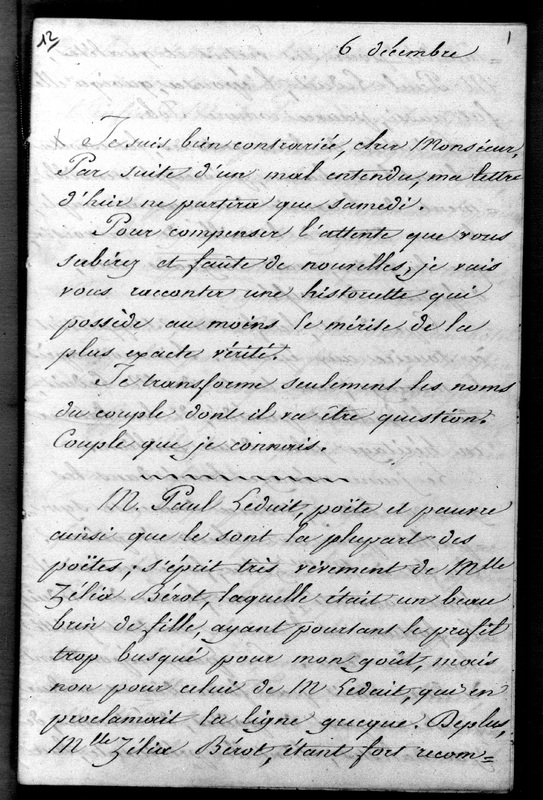 12
6 décembre
1
Je suis bien contrariée, cher Monsieur,
Par suite d'un mal entendu, ma lettre
d'hier ne partira que samedi.
Pour compenser l'attente que vous
subirez et faûte de nouvelles, je vais
vous raconter une historiette qui
possède au moins le mérite de la
plus exacte vérité.
Je transforme seulement les noms
du couple dont il va être question.
Couple que je connais.
M. Paul Leduit, poëte et pauvre
ainsi que le sont la plupart des
poëtes, s'éprit très vèvement de Mlle
Zélia Bérot, laquelle était un beau
brin de fille ayant pourtant le profil
trop busqué pour mon goût, mais
non pour celui de M Leduit, qui en
proclamait la ligne gueque. Deplus,
Mlle Zélia Bérot, étant fort recom=